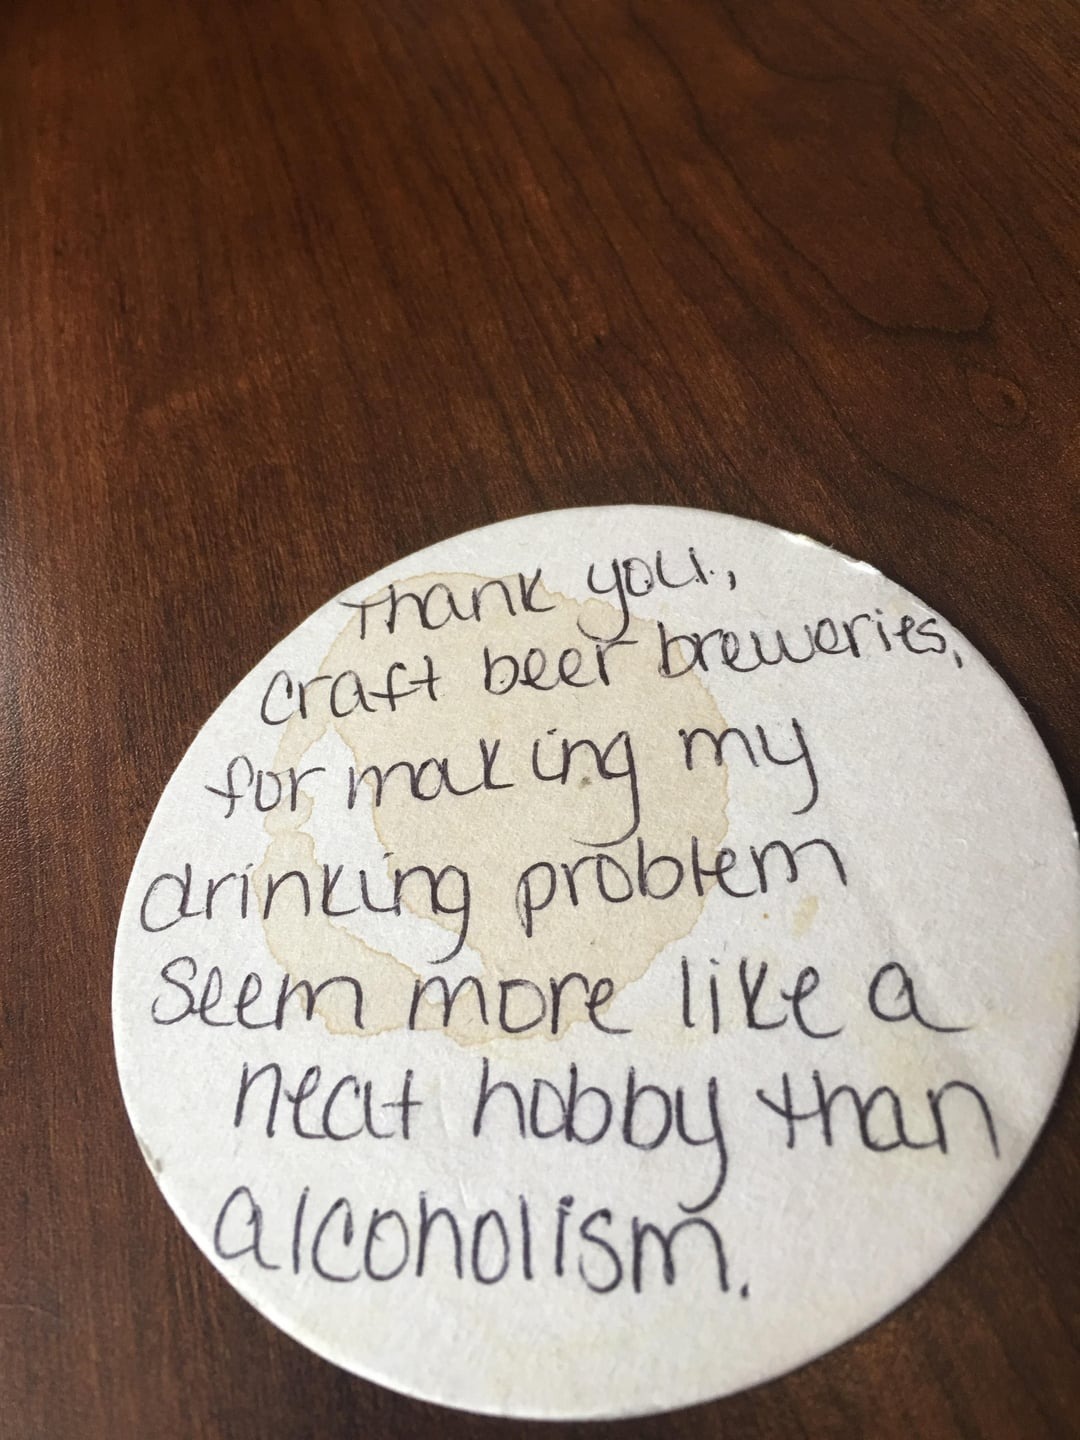 Thank you,
craft beer breweries,
for making my
drinking problem
seem more like a
neat hobby than
alcoholism.